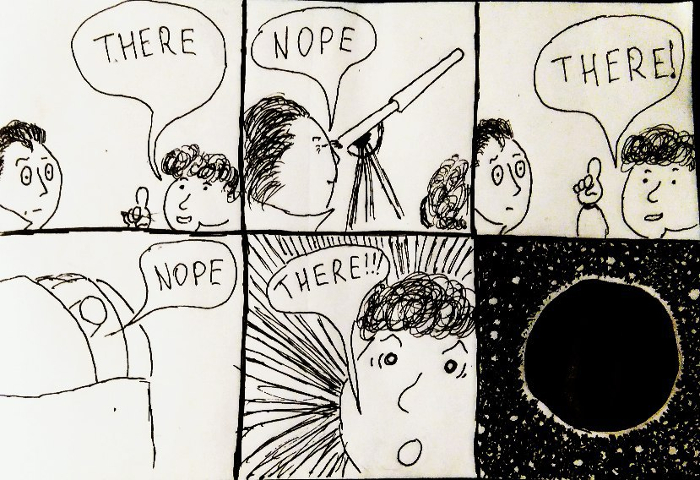 THERE
NOPE
THERE!
NOPE
THERE!!!